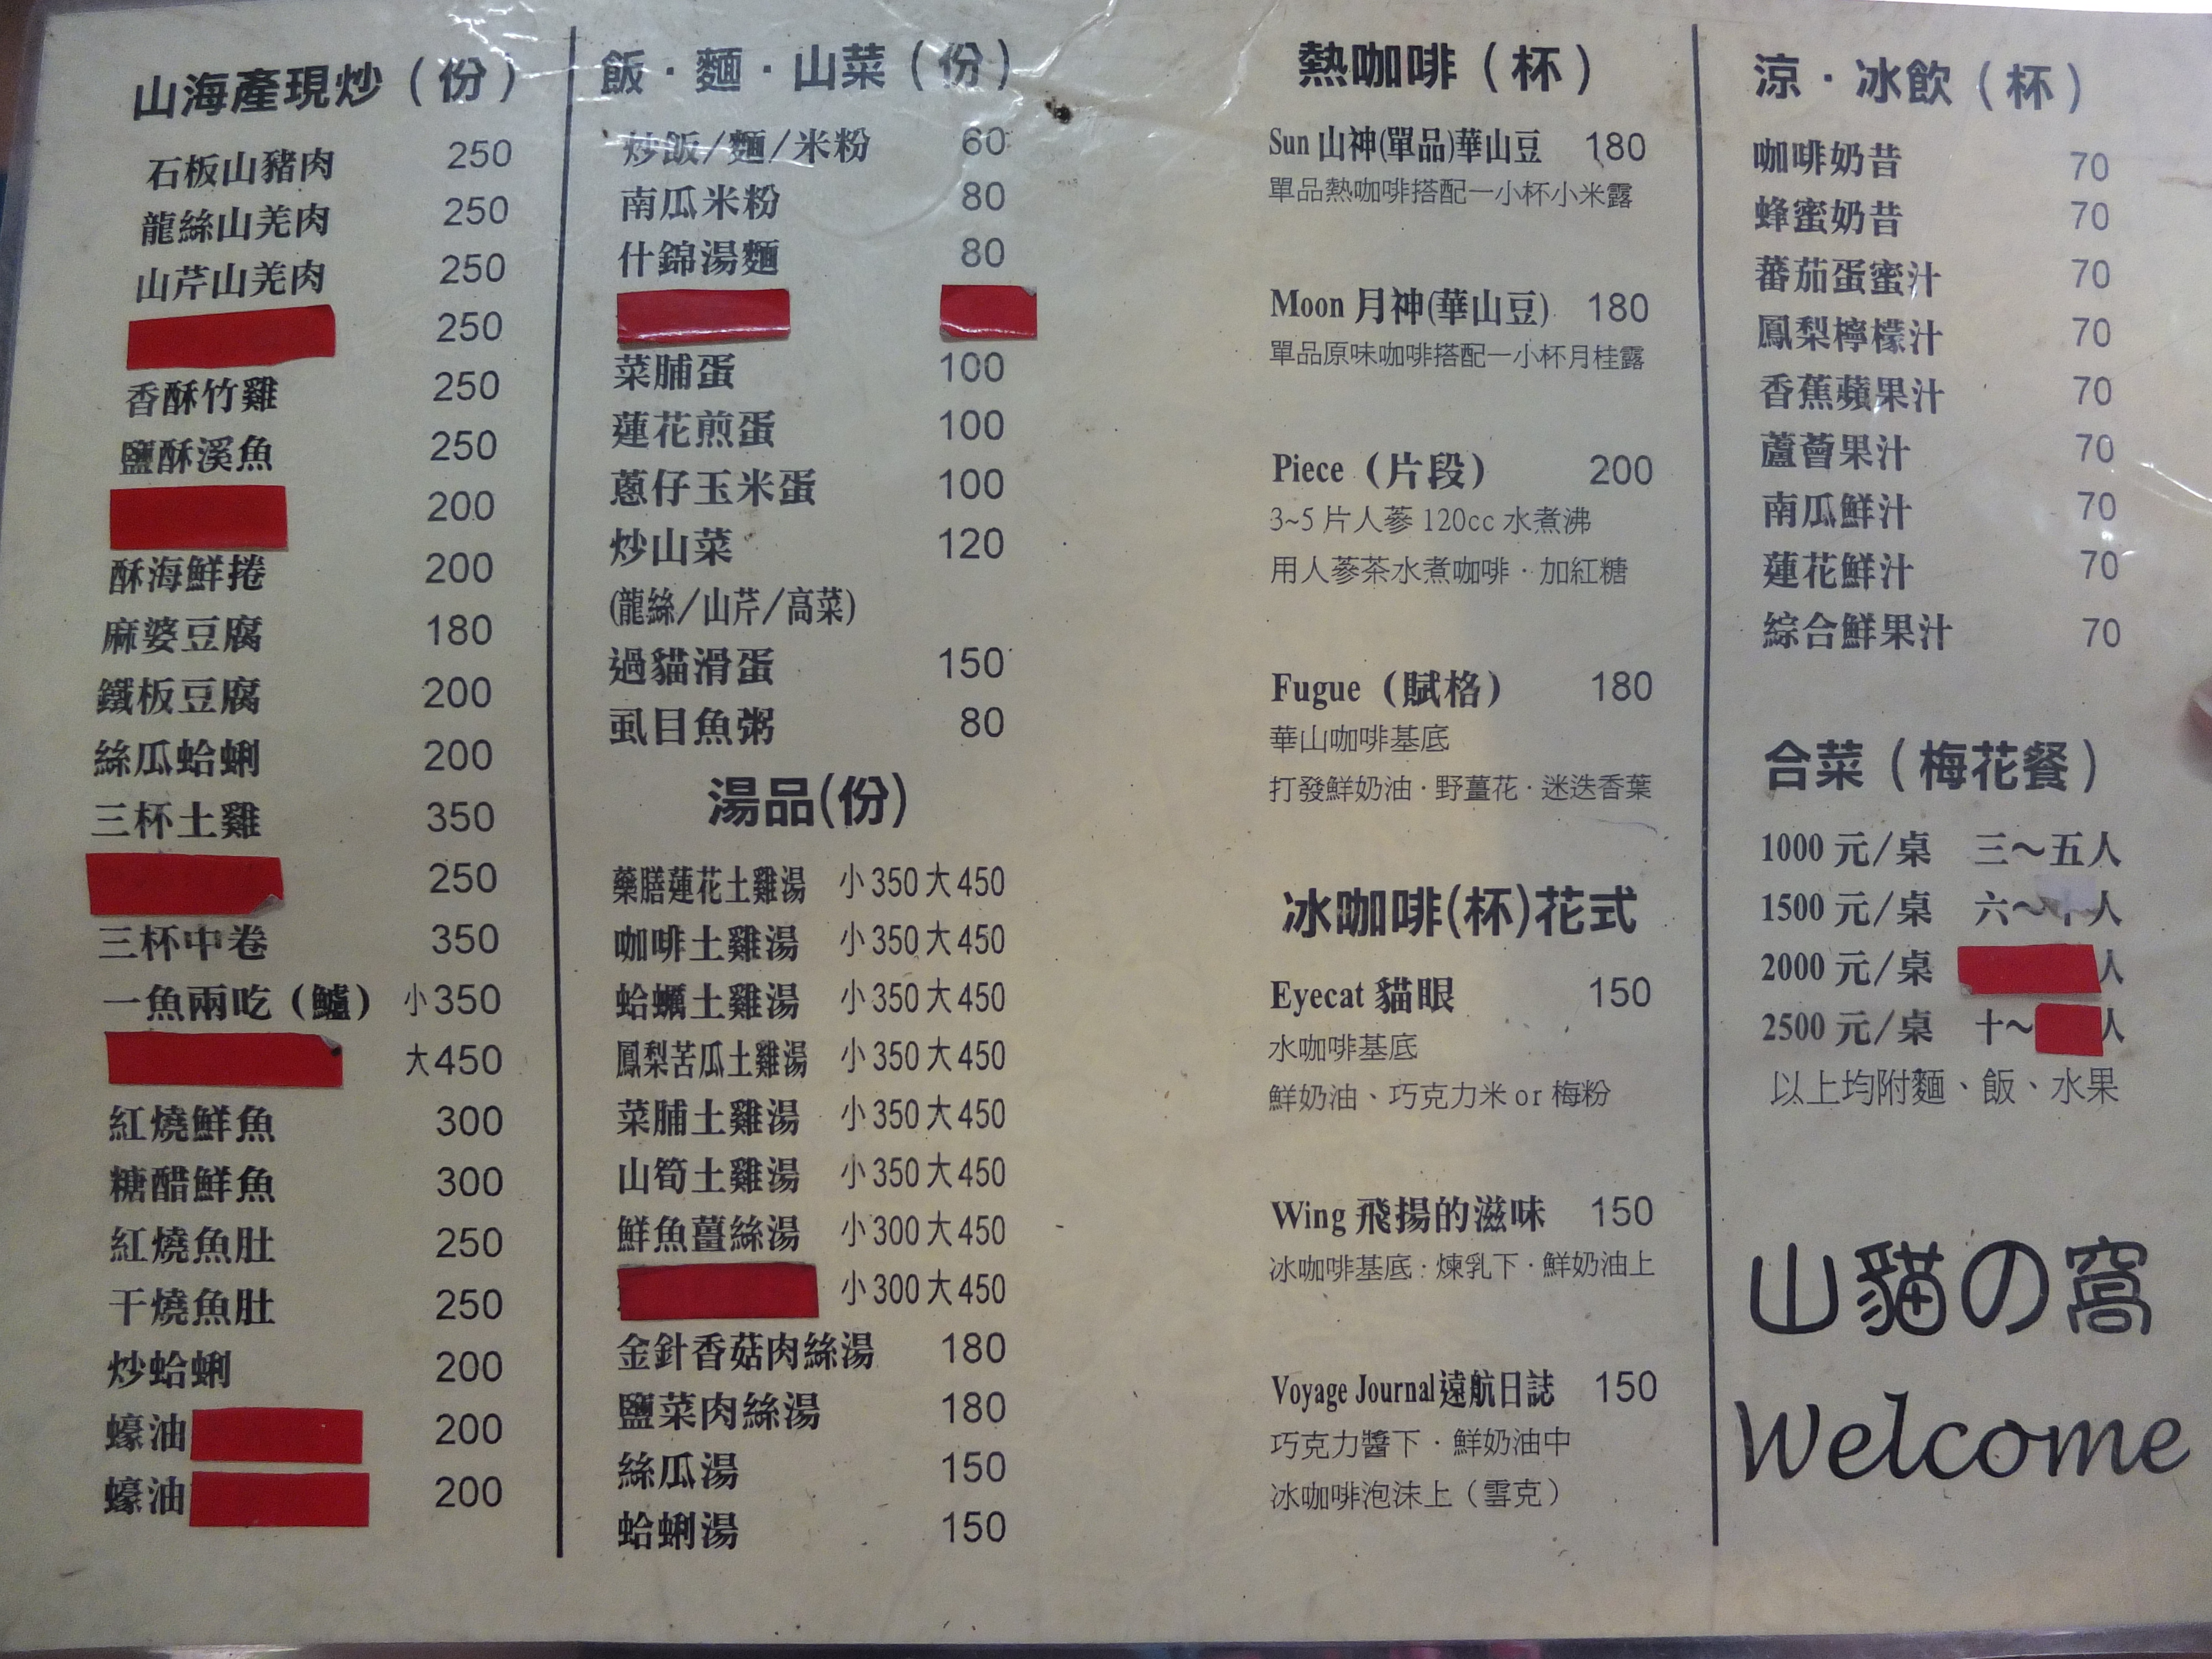 山海產現炒（份）
石板山豬肉 250
龍絲山羌肉 250
山芹山羌肉 250
250
香酥竹雞 250
鹽酥溪魚 250
200
酥海鮮捲 200
麻婆豆腐 180
鐵板豆腐 200
絲瓜蛤蜊 200
三杯土雞 350
250
三杯中卷 350
一魚兩吃（鱸） 小350
大450
紅燒鮮魚 300
糖醋鮮魚 300
紅燒魚肚 250
干燒魚肚 250
炒蛤蜊 200
蠔油 200
蠔油 200
飯·麵·山菜（份）
炒飯/麵/米粉 60
南瓜米粉 80
什錦湯麵 80
菜脯蛋 100
蓮花煎蛋 100
蔥仔玉米蛋 100
炒山菜 120
(龍絲/山芹/高菜)
過貓滑蛋 150
虱目魚粥 80
湯品(份)
藥膳蓮花土雞湯 小350大450
咖啡土雞湯 小350大450
蛤蠣土雞湯 小350大450
鳳梨苦瓜土雞湯 小350大450
菜脯土雞湯 小350大450
山筍土雞湯 小350大450
鮮魚薑絲湯 小300大450
小300大450
金針香菇肉絲湯 180
鹽菜肉絲湯 180
絲瓜湯 150
蛤蜊湯 150
熱咖啡（杯）
Sun 山神(單品)華山豆 180
單品熱咖啡搭配一小杯小米露
Moon 月神(華山豆) 180
單品原味咖啡搭配一小杯月桂露
Piece（片段） 200
3~5片人蔘120cc水煮沸
用人蔘茶水煮咖啡·加紅糖
Fugue（賦格） 180
華山咖啡基底
打發鮮奶油·野薑花·迷迭香葉
冰咖啡(杯)花式
Eyecat 貓眼 150
水咖啡基底
鮮奶油、巧克力米or梅粉
Wing 飛揚的滋味 150
冰咖啡基底:煉乳下·鮮奶油上
Voyage Journal遠航日誌 150
巧克力醬下·鮮奶油中
冰咖啡泡沫上（雪克）
涼·冰飲（杯）
咖啡奶昔 70
蜂蜜奶昔 70
蕃茄蛋蜜汁 70
鳳梨檸檬汁 70
香蕉蘋果汁 70
蘆薈果汁 70
南瓜鮮汁 70
蓮花鮮汁 70
綜合鮮果汁 70
合菜（梅花餐）
1000元/桌 三～五人
1500元/桌 六～人
2000元/桌 人
2500元/桌 十～人
以上均附麵、飯、水果
山貓の窩
Welcome